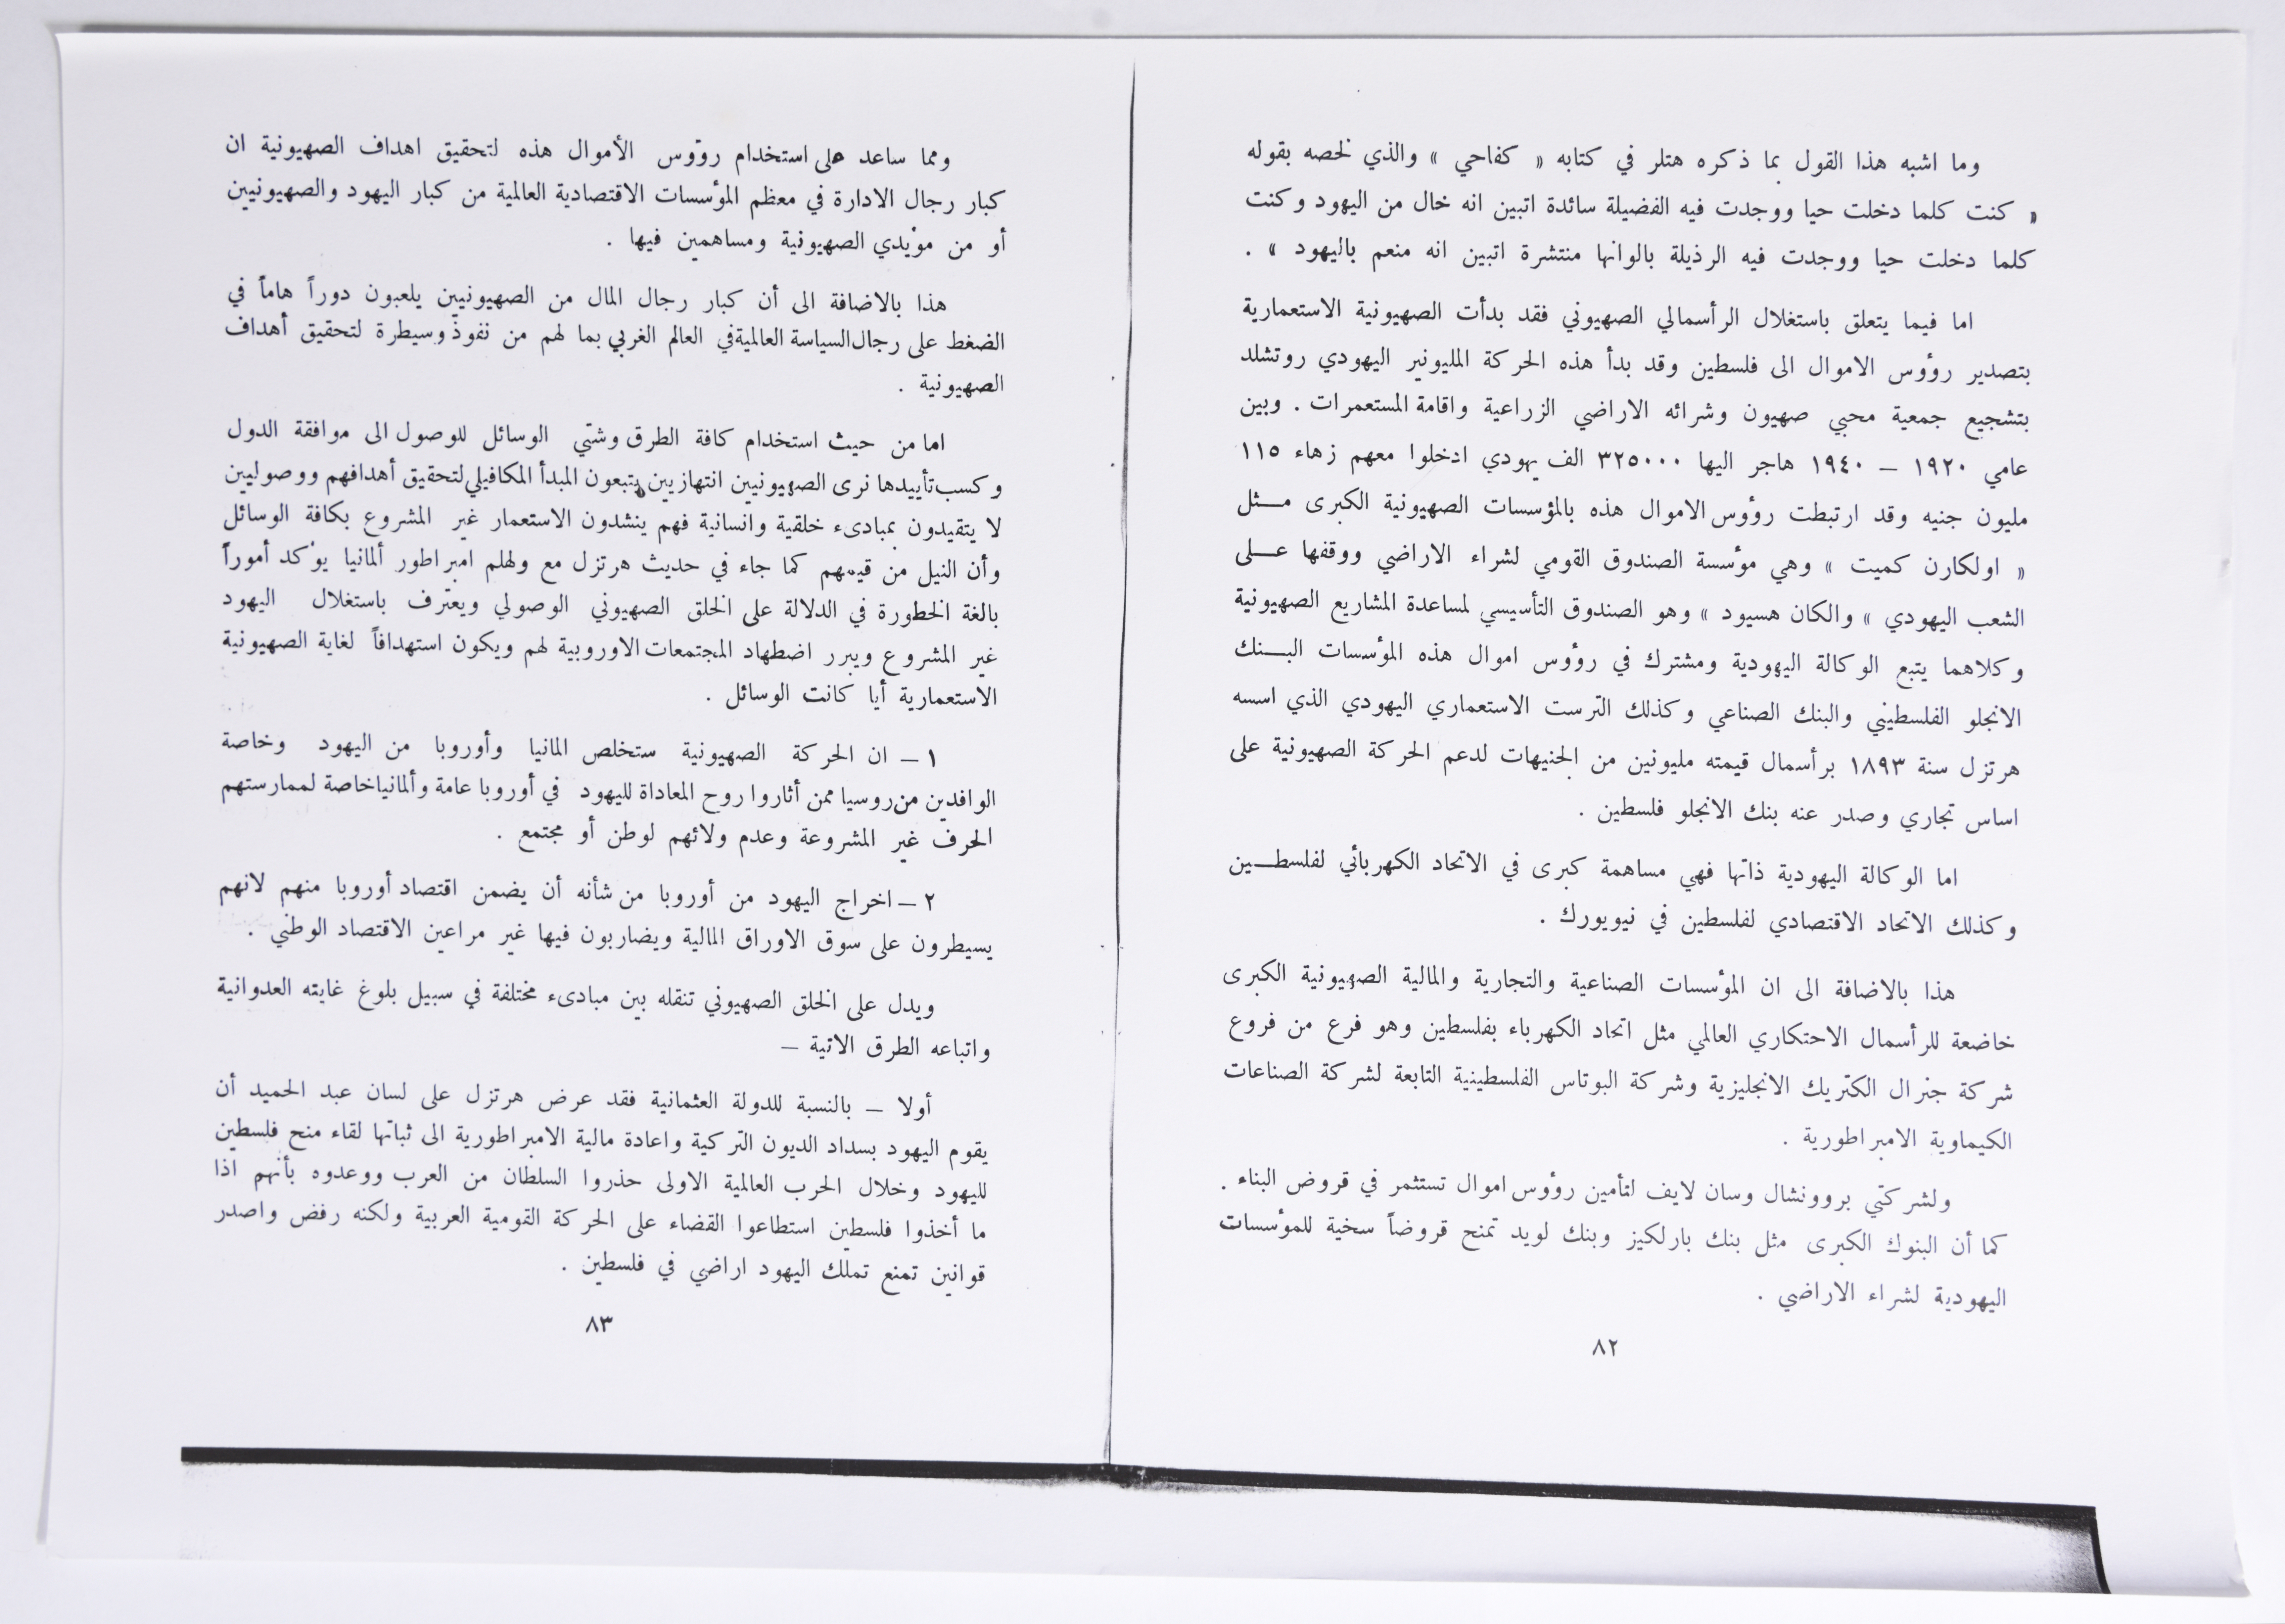 وما اشبه هذا القول بما ذكره هتلر في كتابه « كفاحي » والذي لخصه بقوله
« كنت كلما دخلت حيا ووجدت فيه الفضيلة سائدة اتبين انه خال من اليهود وكنت
كلما دخلت حيا ووجدت فيه الرذيلة بالوانها منتشرة اتبين انه منعم باليهود » .
اما فيما يتعلق باستغلال الرأسمالي الصهيوني فقد بدأت الصهيونية الاستعمارية
بتصدير رؤوس الاموال الى فلسطين وقد بدأ هذه الحركة المليونير اليهودي روتشلد
بتشجيع جمعية محبي صهيون وشرائه الاراضي الزراعية واقامة المستعمرات . وبين
عامي ١٩٢٠ – ١٩٤٠ هاجر اليها ٣٢٥٠٠٠ الف يهودي ادخلوا معهم زهاء ١١٥
مليون جنيه وقد ارتبطت رؤوس الاموال هذه بالمؤسسات الصهيونية الكبرى مـــثل
« اولكارن كميت » وهي مؤسسة الصندوق القومي لشراء الاراضي ووقفها عـــلى
الشعب اليهودي » والكان هسيود » وهو الصندوق التأسيسي لمساعدة المشاريع الصهيونية
وكلاهما يتبع الوكالة اليهودية ومشترك في رؤوس اموال هذه المؤسسات البـــنك
الانجلو الفلسطيني والبنك الصناعي وكذلك الترست الاستعماري اليهودي الذي اسسه
هرتزل سنة ١٨٩٣ برأسمال قيمته مليونين من الجنيهات لدعم الحركة الصهيونية على
اساس تجاري وصدر عنه بنك الانجلو فلسطين .
اما الوكالة اليهودية ذاتها فهي مساهمة كبرى في الاتحاد الكهربائي لفلسطـــين
وكذلك الاتحاد الاقتصادي لفلسطين في نيويورك .
هذا بالاضافة الى ان المؤسسات الصناعية والتجارية والمالية الصهيونية الكبرى
خاضعة للرأسمال الاحتكاري العالمي مثل اتحاد الكهرباء بفلسطين وهو فرع من فروع
شركة جنرال الكتريك الانجليزية وشركة البوتاس الفلسطينية التابعة لشركة الصناعات
الكيماوية الامبراطورية .
ولشركتي بروونشال وسان لايف لتأمين رؤوس اموال تستثمر في قروض البناء .
كما أن البنوك الكبرى مثل بنك باركليز وبنك لويد تمنح قروضاً سخية للمؤسسات
اليهودية لشراء الاراضي .
٨٢
ومما ساعد على استخدام رؤوس الأموال هذه لتحقيق اهداف الصهيونية ان
كبار رجال الادارة في معظم المؤسسات الاقتصادية العالمية من كبار اليهود والصهيونيين
أو من مؤيدي الصهيونية ومساهمين فيها .
هذا بالاضافة الى أن كبار رجال المال من الصهيونيين يلعبون دوراً هاماً في
الضغط على رجال السياسة العالمية في العالم الغربي بما لهم من نفوذ وسيطرة لتحقيق أهداف
الصهيونية .
اما من حيث استخدام كافة الطرق وشتى الوسائل للوصول الى موافقة الدول
وكسب تأييدها نرى الصهيونيين انتهازيين يتبعون المبدأ المكافيلي لتحقيق أهدافهم ووصوليين
لا يتقيدون بمبادىء خلقية وانسانية فهم ينشدون الاستعمار غير المشروع بكافة الوسائل
وأن النيل من قيمهم كما جاء في حديث هرتزل مع ولهلم امبراطور ألمانيا يؤكد أموراً
بالغة الخطورة في الدلالة على الخلق الصهيوني الوصولي ويعترف باستغلال اليهود
غير المشروع ويبرر اضطهاد المجتمعات الاوروبية لهم ويكون استهدافاً لغاية الصهيونية
الاستعمارية أيا كانت الوسائل .
١ – ان الحركة الصهيونية ستخلص المانيا وأوروبا من اليهود وخاصة
الوافدين من روسيا ممن أثاروا روح المعاداة لليهود في أوروبا عامة وألمانيا خاصة لممارستهم
الحرف غير المشروعة وعدم ولائهم لوطن أو مجتمع .
٢ – اخراج اليهود من أوروبا من شأنه أن يضمن اقتصاد أوروبا منهم لانهم
يسيطرون على سوق الاوراق المالية ويضاربون فيها غير مراعين الاقتصاد الوطني .
ويدل على الخلق الصهيوني تنقله بين مبادىء مختلفة في سبيل بلوغ غايته العدوانية
واتباعه الطرق الاتية –
أولا – بالنسبة للدولة العثمانية فقد عرض هرتزل على لسان عبد الحميد أن
يقوم اليهود بسداد الديون التركية واعادة مالية الامبراطورية الى ثباتها لقاء منح فلسطين
لليهود وخلال الحرب العالمية الاولى حذروا السلطان من العرب ووعدوه بأنهم اذا
ما أخذوا فلسطين استطاعوا القضاء على الحركة القومية العربية ولكنه رفض واصدر
قوانين تمنع تملك اليهود اراضي في فلسطين .
٨٣